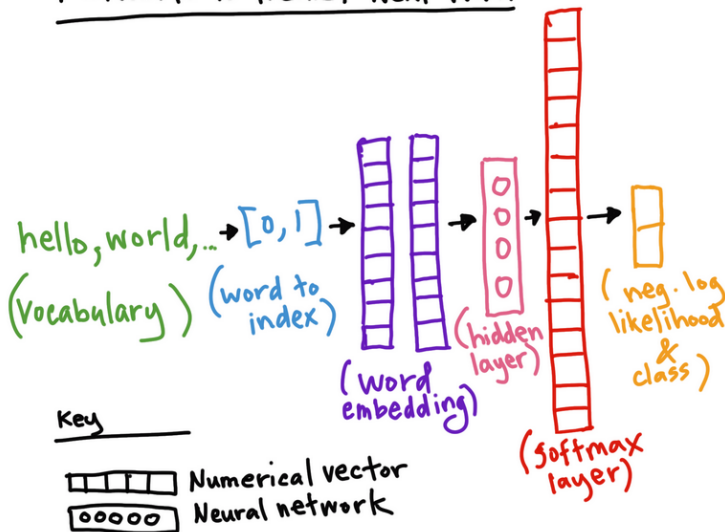 hello, world,...
(vocabulary)
[0, 1]
(word to
index)
(word
embedding)
(hidden
layer)
(softmax
layer)
(neg. log
likelihood
&
class)
Key
Numerical vector
Neural network